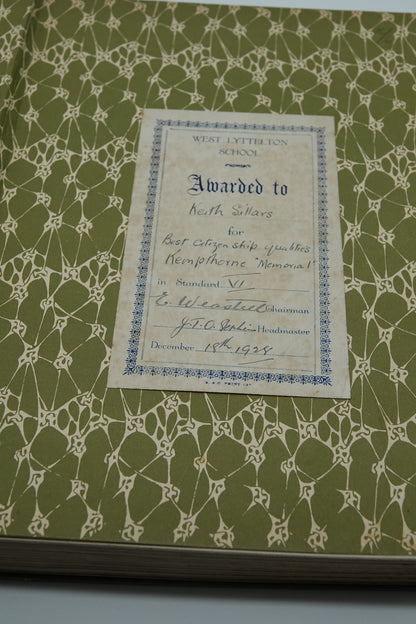 WEST LYTTELTON
SCHOOL
Awarded to
Keith Sillars
for
Best citizenship qualities
Kempthorne "Memorial"
in Standard VI
E. Chairman
J.T.O. Headmaster
December 18th 1928